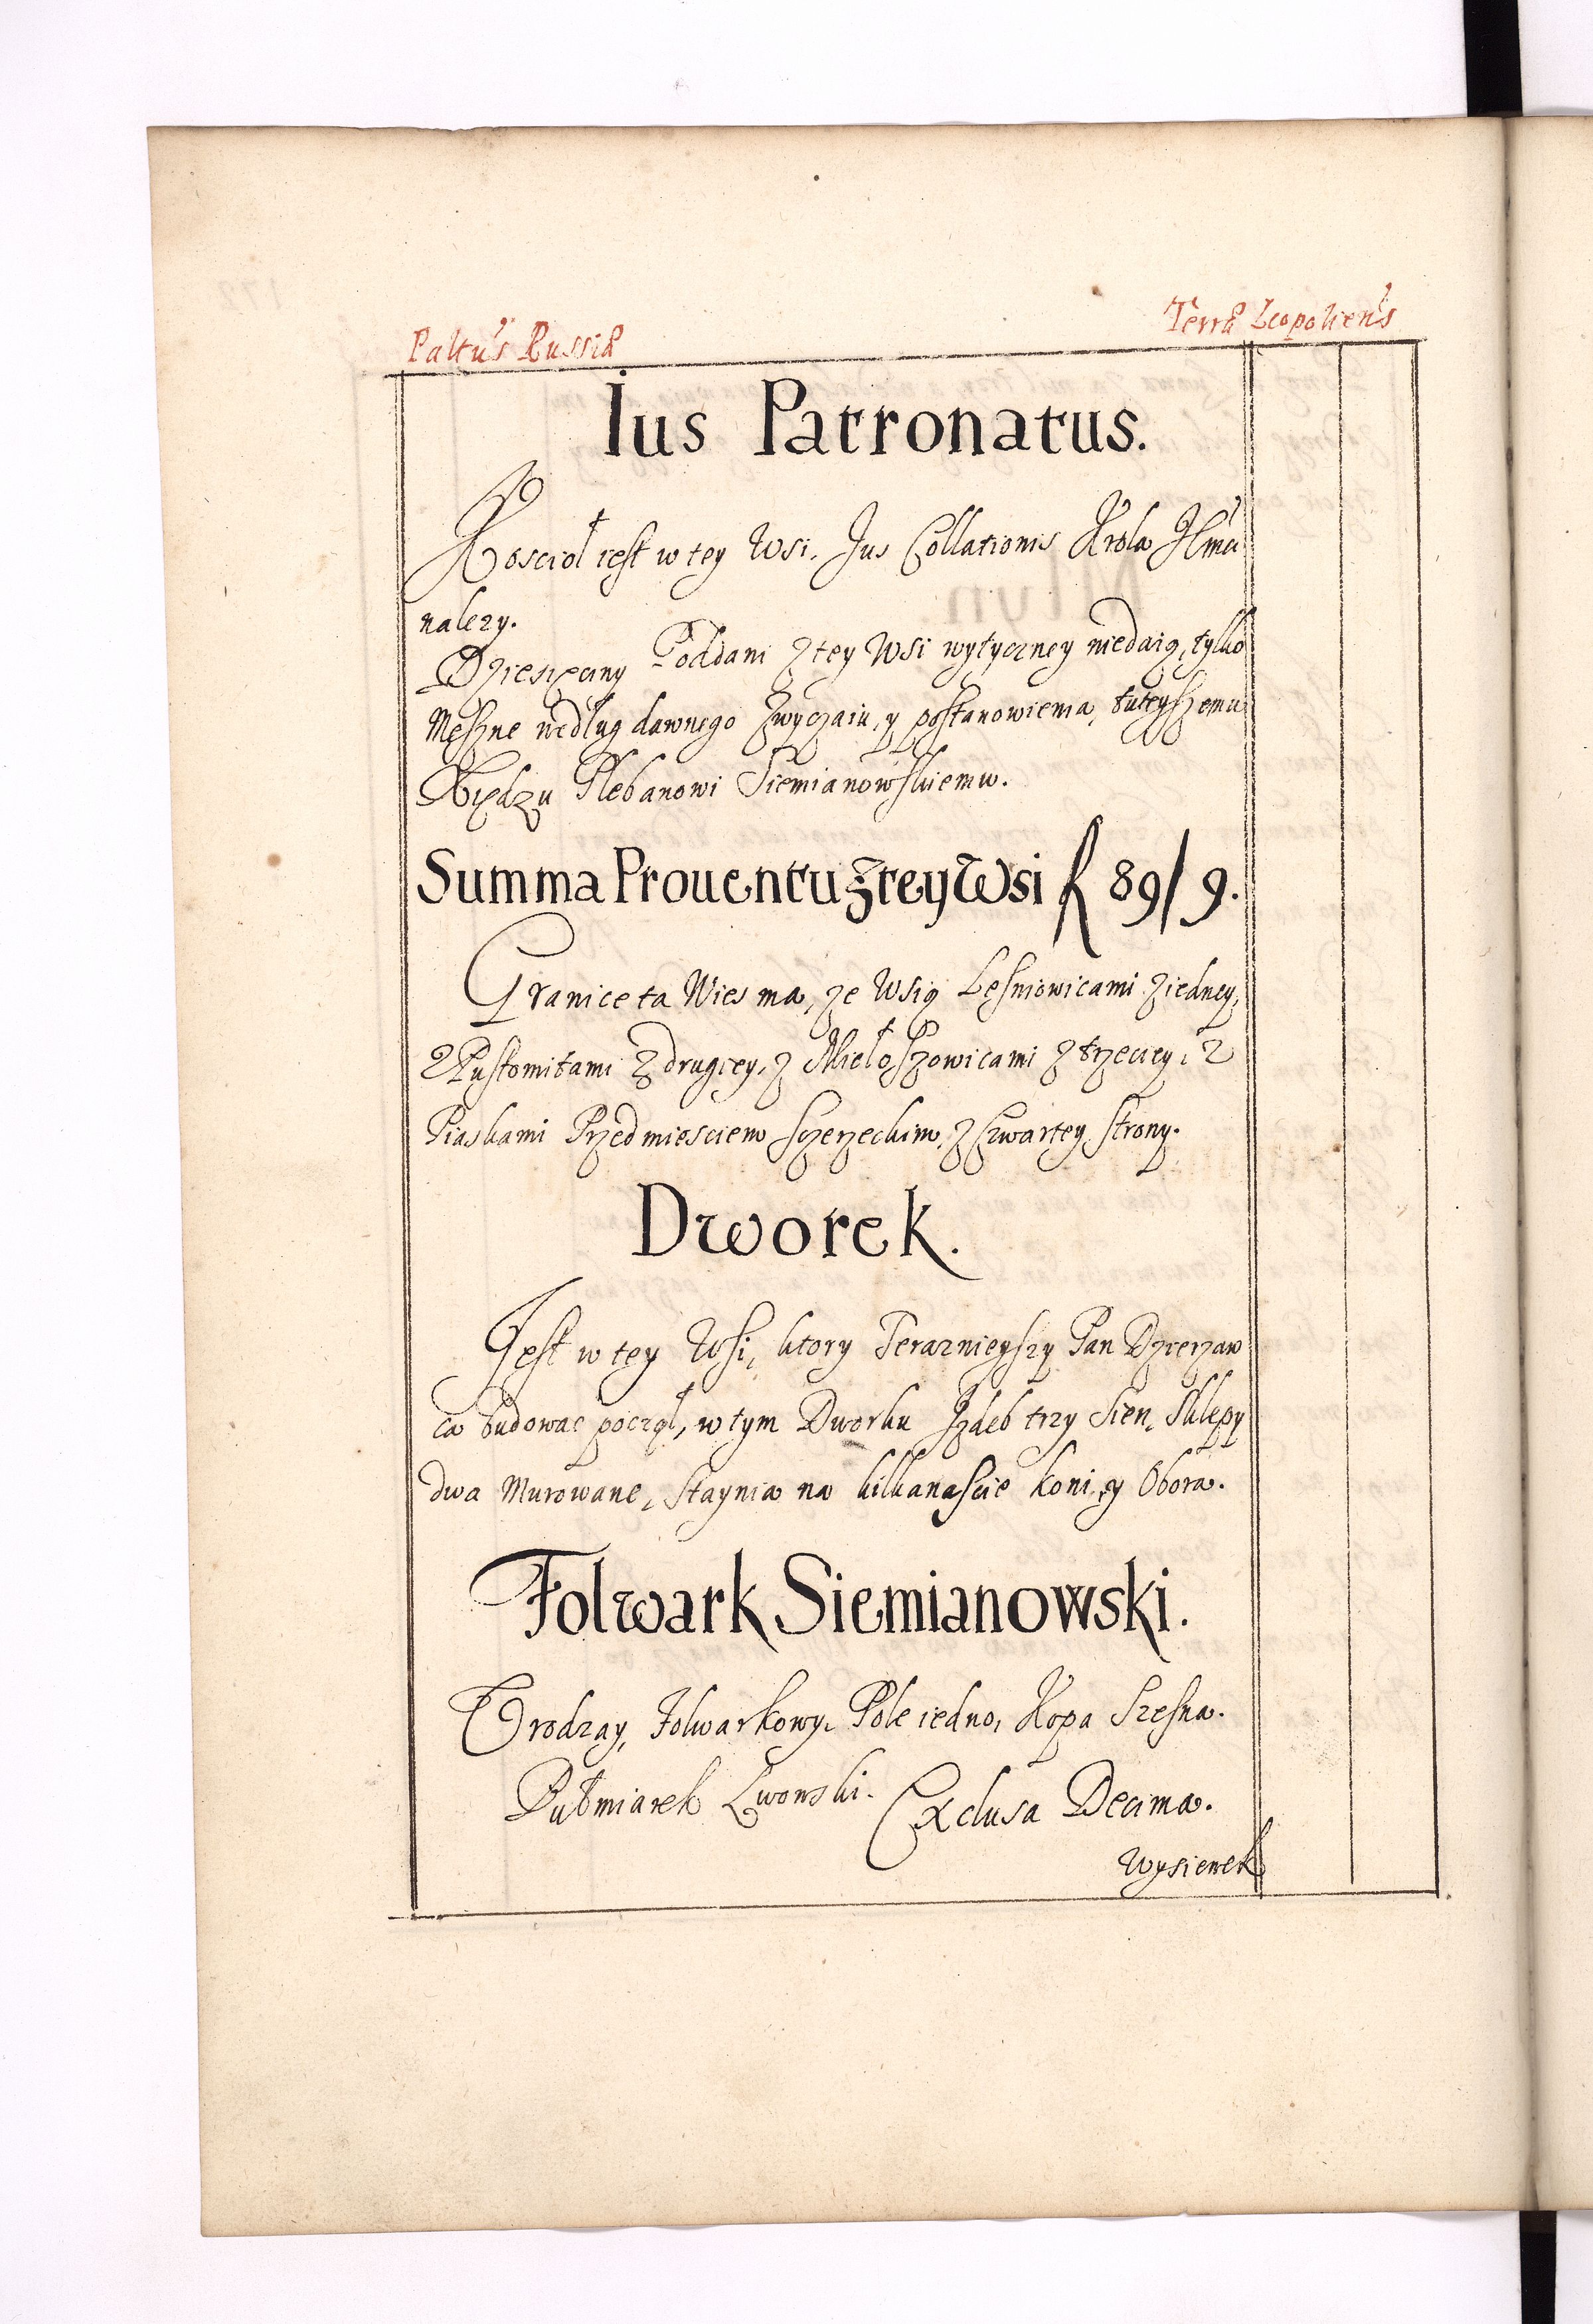 Palt'us Russiæ
Terræ Leopolien's
Ius Patronatus.
Koscioł iest w tey Wsi. Jus Collationis Krola JEmci
nalezy.
Dziesięciny Poddani z tey Wsi wytyczney niedaią, tylko
Meszne według dawnego Zwyczaiu, y postanowienia, tuteyszemu
Xiędzu Plebanowi Siemianowskiemu.
Summa Prouentu z tey Wsi f 89/9.
Granice ta Wies ma, ze Wsią Leśniowicami z iedney,
z Pustomitami z drugiey, z Miełoszowicami z trzeciey, z
Piaskami Przedmiesciem Sczerzeckim, z Czwartey Strony.
Dworek.
Jest w tey Wsi, ktory Teraznieyszy Pan Dzierzaw
ca budowac począł, w tym Dworku Jzdeb trzy Sien, Sklepy
dwa Murowane, Staynia na kilkanascie koni, y Obora.
Folwark Siemianowski.
Vrodzay, Folwarkowy. Pole iedno, Kopa Szesna.
Pułmiarek Lwowski. Exclusa Decima.
Wysiewek